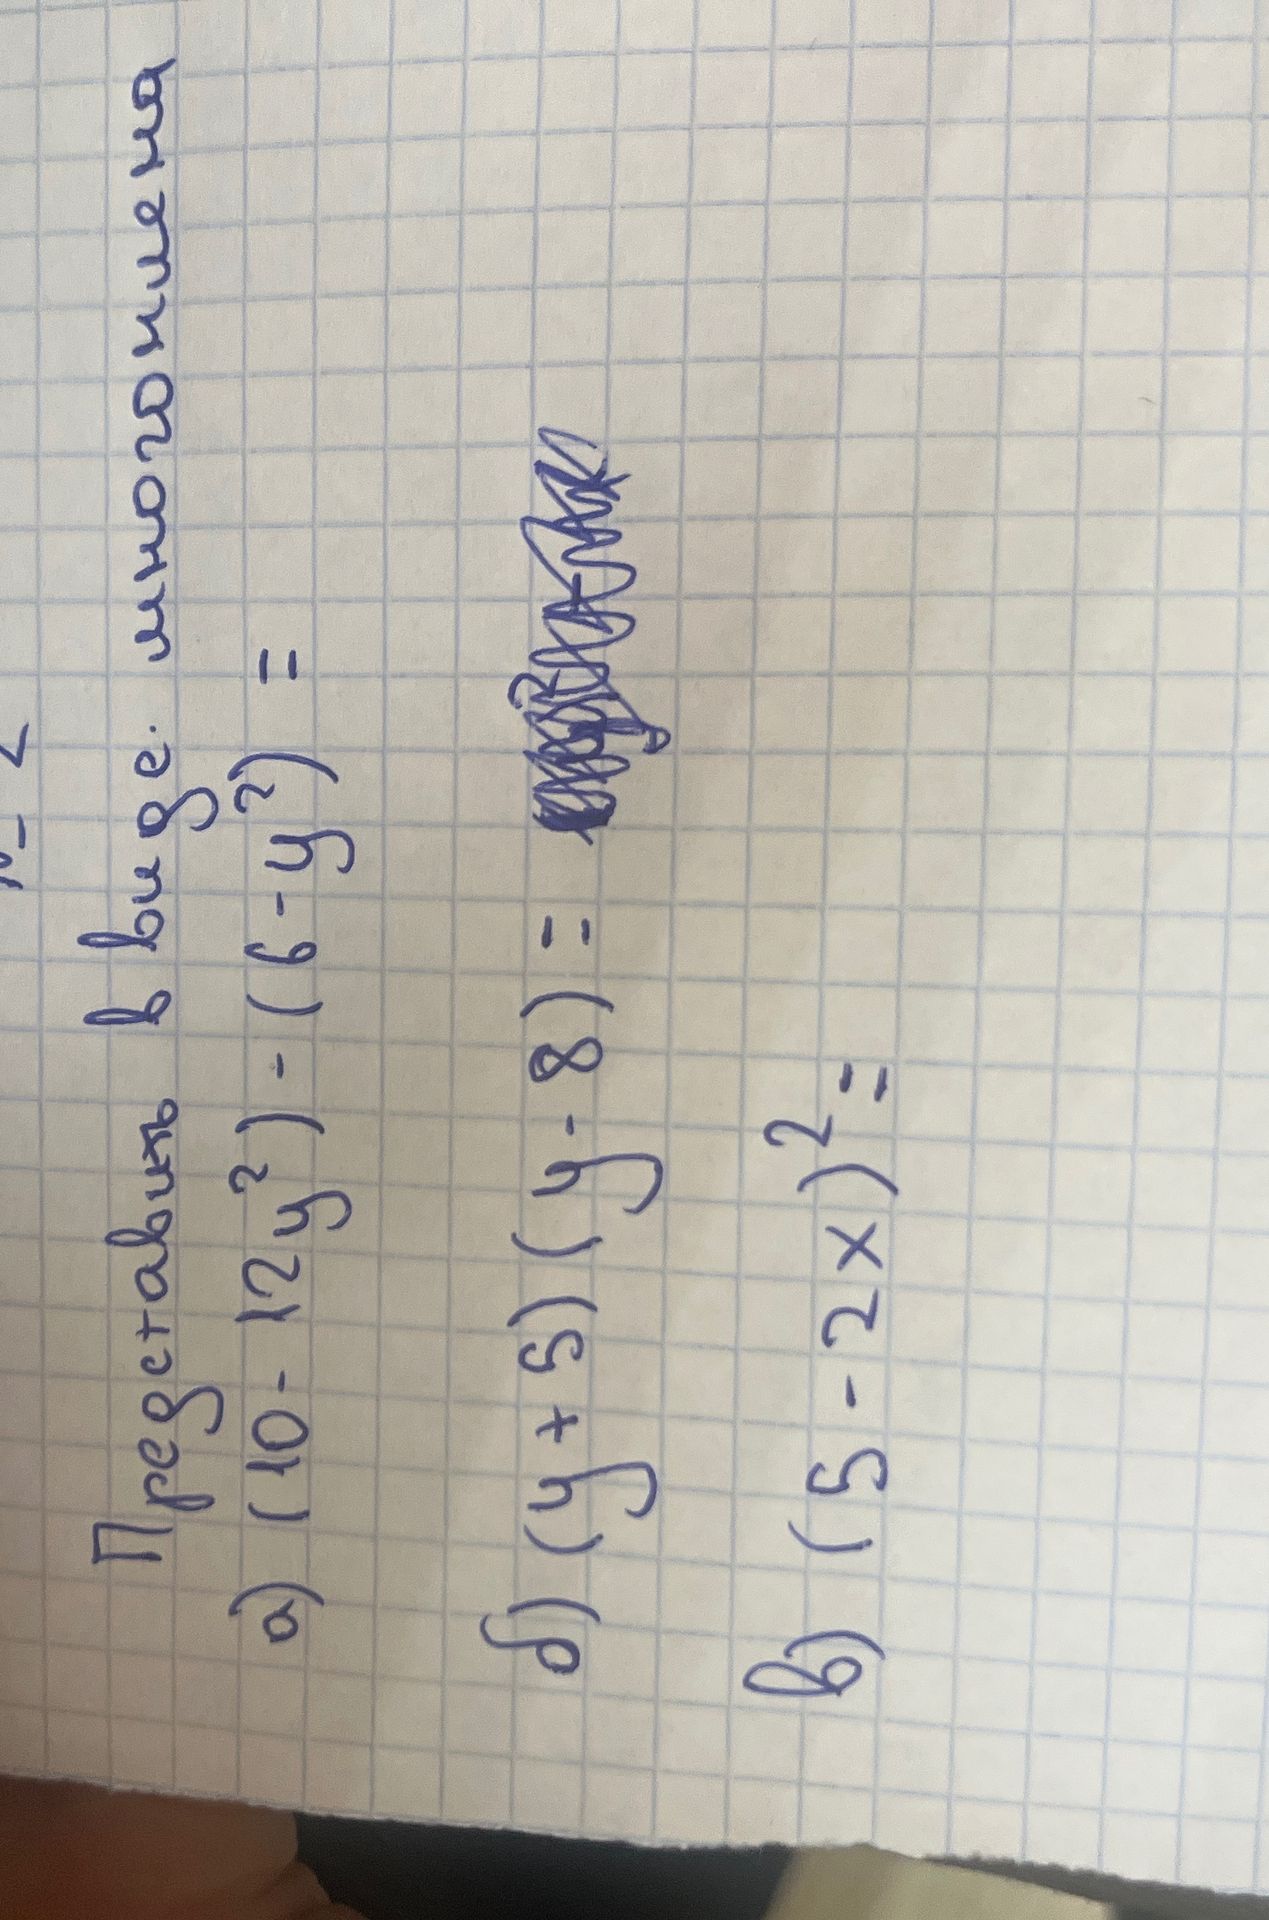 Представить в виде. многочлена
а) (10 - 12y²) - (6 - y²) =
б) (y + 5)(y - 8) =
в) (5 - 2x)² =